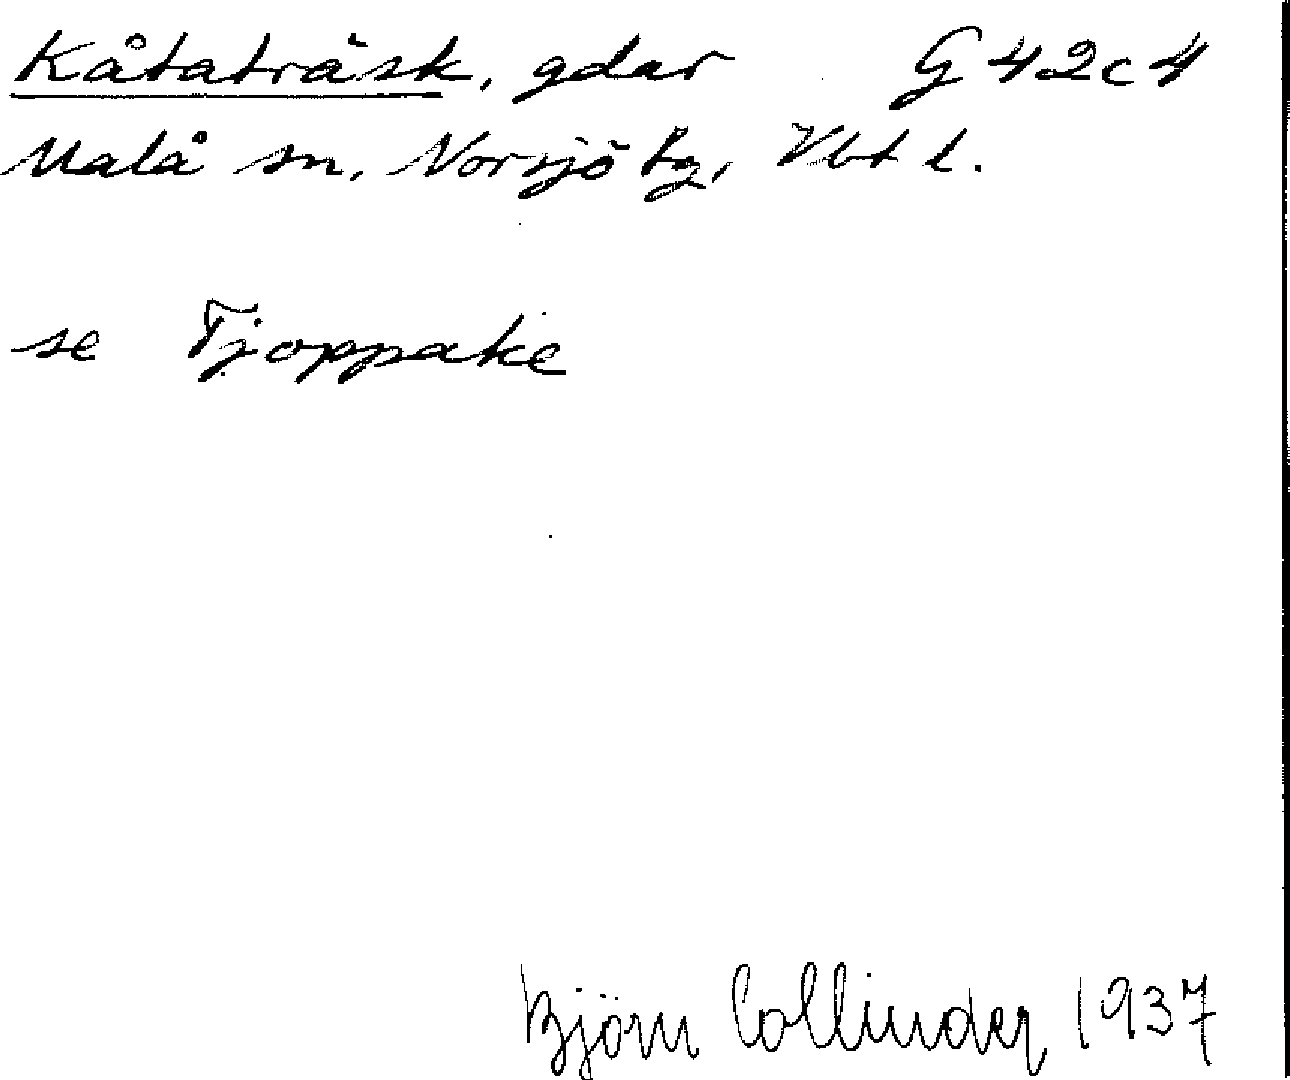 Kåtaträsk, gdar G 42c4
Malå sn, Norsjö tg, Vbt l.
se Tjoppake
Björn Collinder 1937